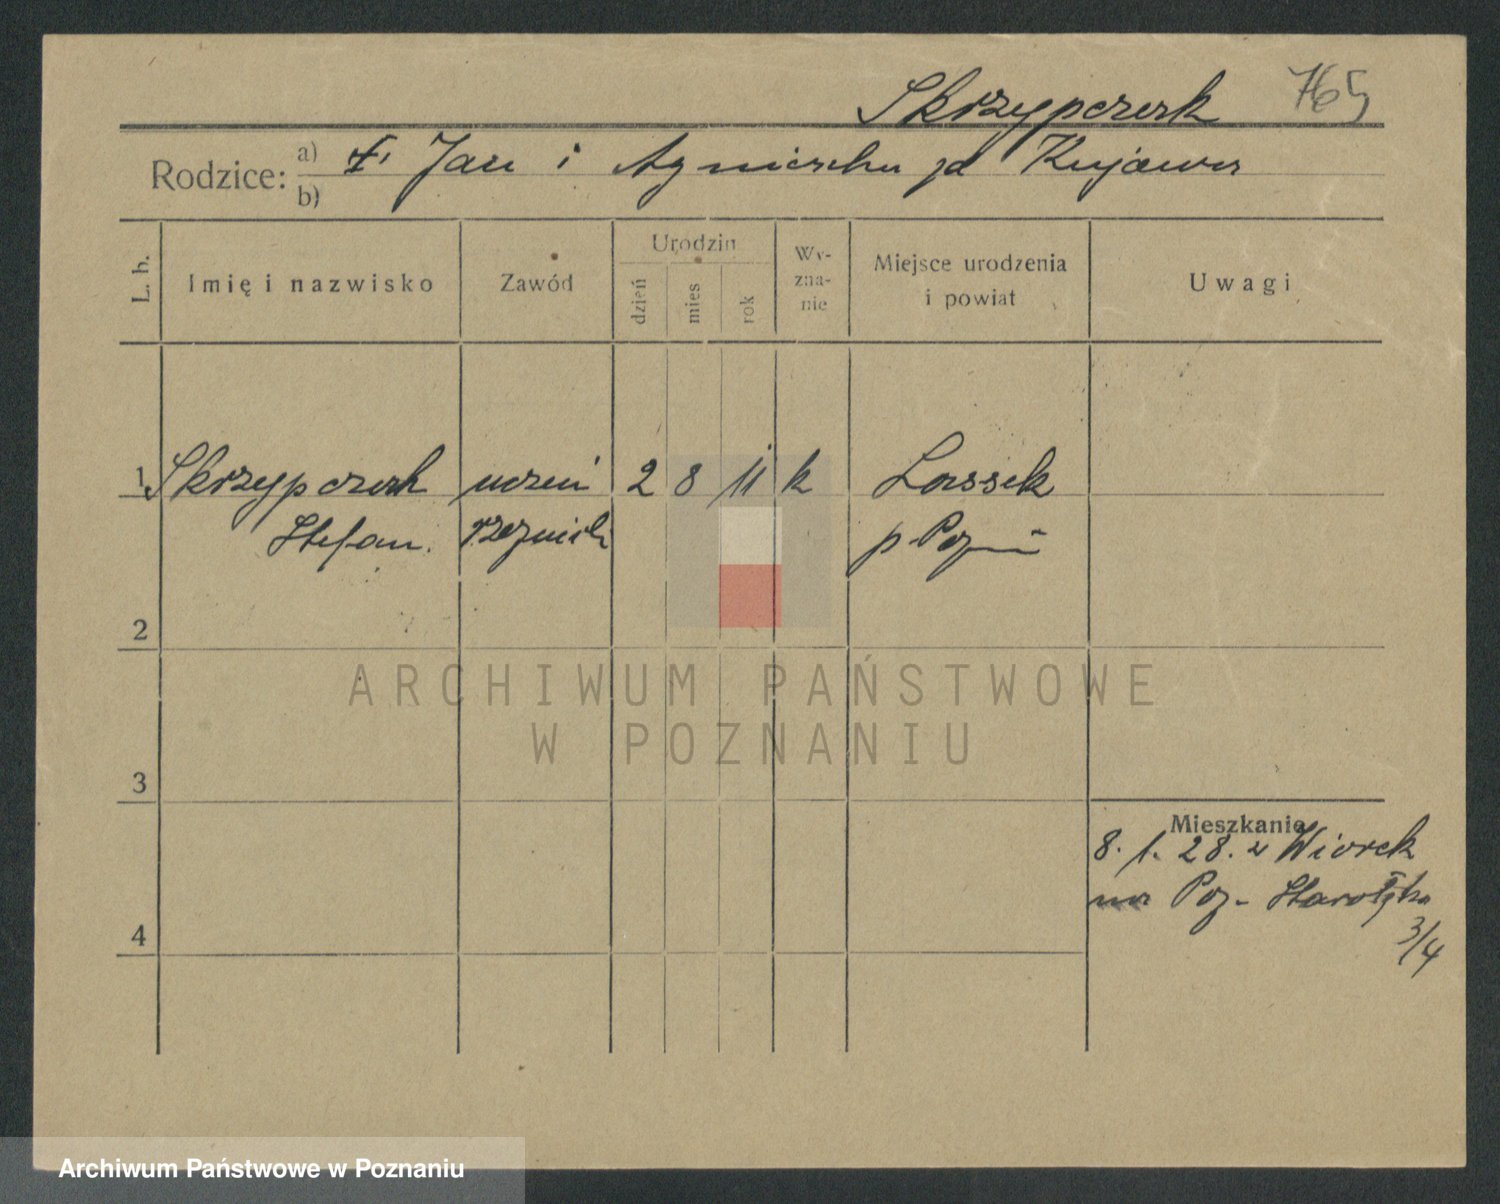 Skrzypczak 765
Rodzice: a) Jan i Agnieszka zd Kujawa
b)
L. b. Imię i nazwisko Zawód Urodzin dzień mies rok Wyznanie Miejsce urodzenia i powiat Uwagi
1 Skrzypczak uczeń 2 8 11 k Lassek
Stefan. rzeźnicki p. Pozn
2
ARCHIWUM PAŃSTWOWE
W POZNANIU
3
Mieszkanie
8. 1. 28. z Wiorek
na Poz- Starołęka
3/4
4
Archiwum Państwowe w Poznaniu